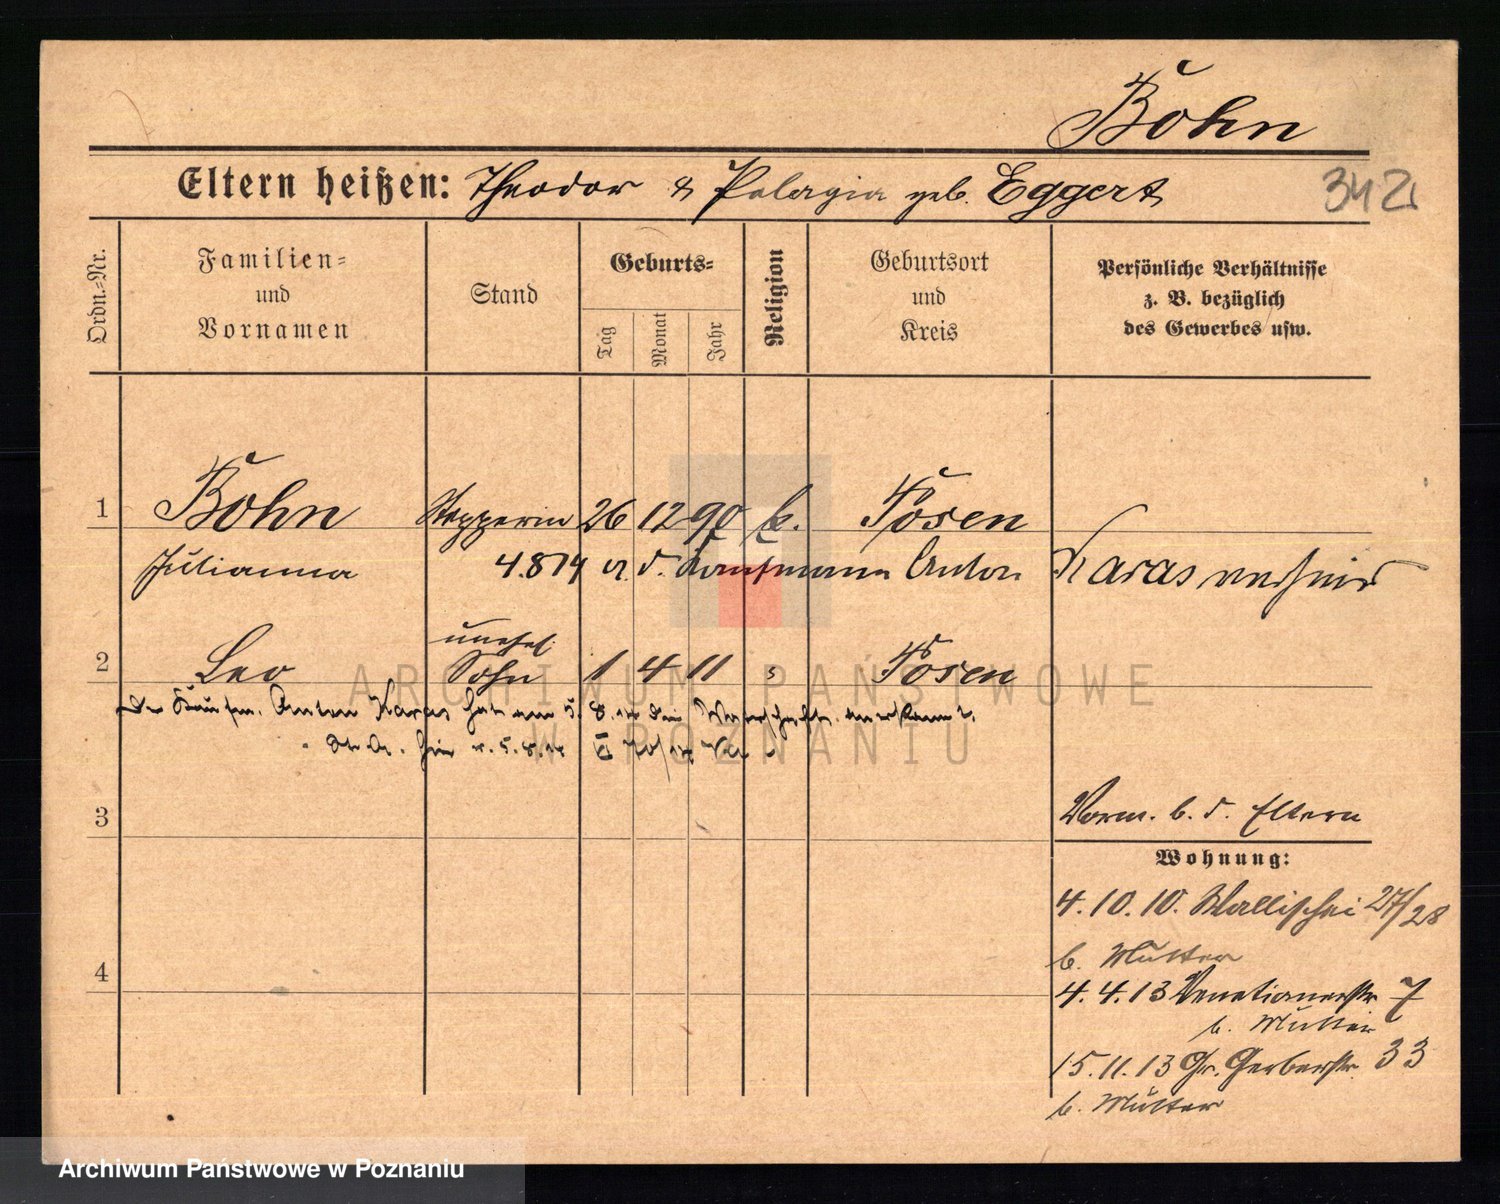 Bohn
Eltern heißen: Theodor & Pelagia geb. Eggert
342
Ordn.-Nr.
Familien- und Vornamen
Stand
Geburts-
Tag
Monat
Jahr
Religion
Geburtsort und Kreis
Persönliche Verhältnisse z. B. bezüglich des Gewerbes usw.
1 Bohn Stepperin 26 12 90 k. Posen
Julianna 4.8 14 m. d. Kaufmann Anton Karas verheir
unehel.
2 Leo Sohn 1 4 11 " Posen
Der Kaufm. Anton Karas hat am 5. 8. 14 die Vaterschaft anerkannt.
St. A. hier v. 5. 8. 14
3
Vorm. b. d. Eltern
Wohnung:
4. 10. 10. Wallischei 27/28
b. Mutter
4
4. 4. 13 Venetianerstr 7
b. Mutter
15. 11. 13 Gr. Gerberstr. 33
b. Mutter
ARCHIWUM PAŃSTWOWE
W POZNANIU
Archiwum Państwowe w Poznaniu